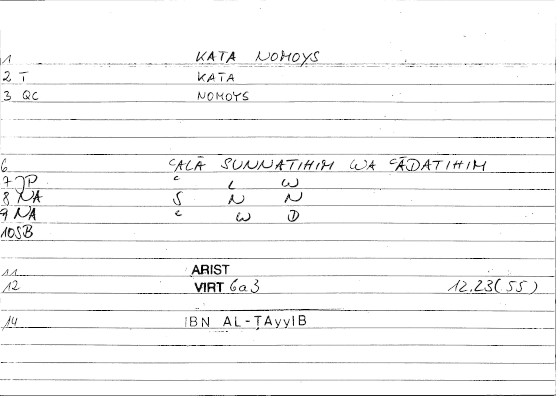 1 KATA NOMOYS
2 T KATA
3 QC NOMOYS
6 ʿALĀ SUNNATIHIM WA ʿĀDATIHIM
7 JP ʿ L W
8 NA S N N
9 NA ʿ W D
10 SB
11 ARIST
12 VIRT 6a3 12.23(55)
14 IBN AL-ṬAyyIB